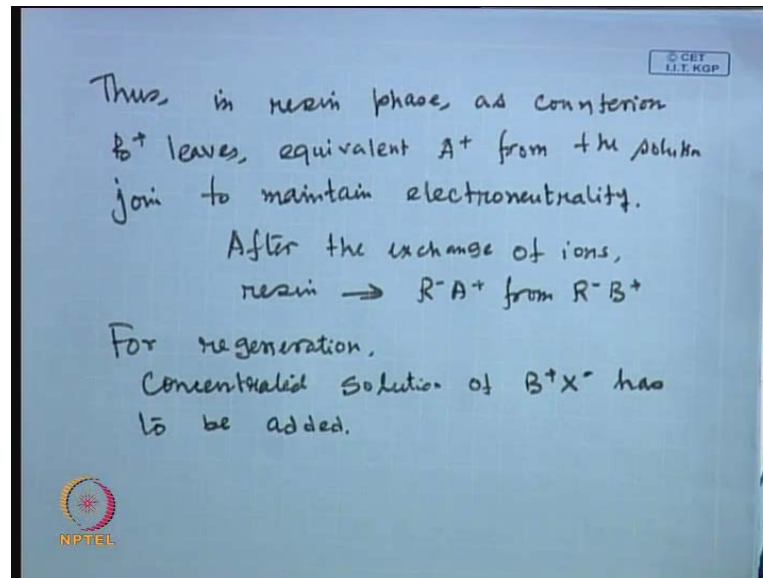 © CET
I.I.T. KGP
Thus, in resin phase, as counterion
B⁺ leaves, equivalent A⁺ from the solution
join to maintain electroneutrality.
After the exchange of ions,
resin → R⁻A⁺ from R⁻B⁺
For regeneration,
Concentrated solution of B⁺X⁻ has
to be added.
NPTEL